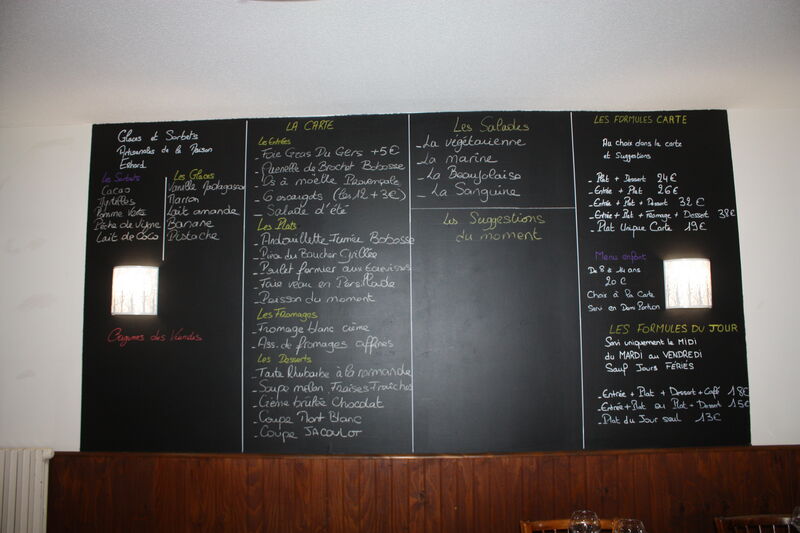 Glaces et Sorbets
Artisanales de la Maison
Erhard
Les Sorbets
Cacao
Myrtilles
Pomme Verte
Pêche de Vigne
Lait de Coco
Les Glaces
Vanille Madagascar
Marron
Lait amande
Banane
Pistache
Origines des Viandes
LA CARTE
Les Entrées
- Foie Gras Du Gers +5€
- Quenelle de Brochet Bobosse
- Os à moëlle Provençale
- 6 escargots (les 12 +3€)
- Salade d'été
Les Plats
- Andouillette Jumeau Bobosse
- Pièce du Boucher Grillée
- Poulet fermier aux écrevisses
- Foie veau en Persillade
- Poisson du moment
Les Fromages
- Fromage blanc crème
- Ass. de fromages affinés
Les Desserts
- Tarte Rhubarbe à la romande
- Soupe melon Fraises Fraîches
- Crème brûlée Chocolat
- Coupe Mont Blanc
- Coupe JACOULOT
Les Salades
- La végétarienne
- La marine
- La Beaujolaise
- La Sanguine
Les Suggestions
du moment
LES FORMULES CARTE
Au choix dans la carte
et Suggestions
- Plat + Dessert 24€
- Entrée + Plat 26€
- Entrée + Plat + Dessert 32€
- Entrée + Plat + Fromage + Dessert 38€
- Plat Unique Carte 19€
Menu enfant
De 8 à 14 ans
20€
Choix à la Carte
Servi en Demi Portion
LES FORMULES DU JOUR
Servi uniquement le MIDI
du MARDI au VENDREDI
Sauf Jours FÉRIÉS
- Entrée + Plat + Dessert + Café 18€
- Entrée + Plat ou Plat + Dessert 15€
- Plat du Jour seul 13€